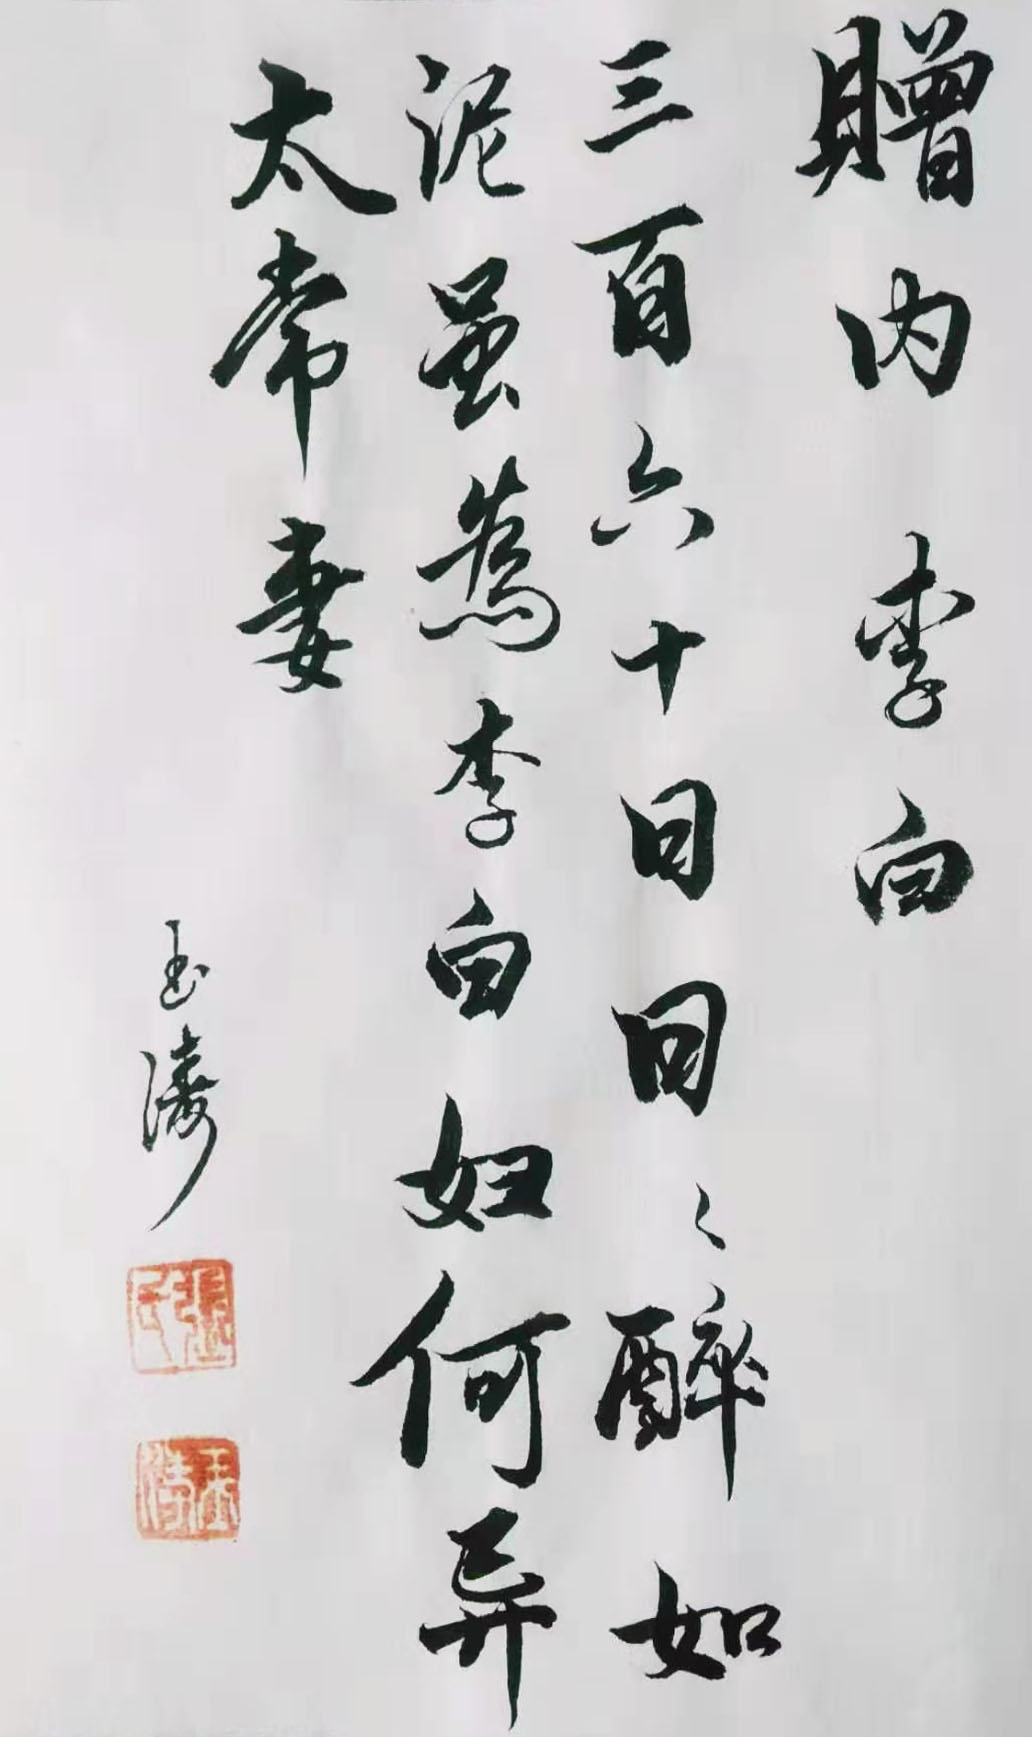 贈内 李白
三百六十日日〻醉如
泥虽為李白妇何异
太常妻
玉濤
張氏
玉濤